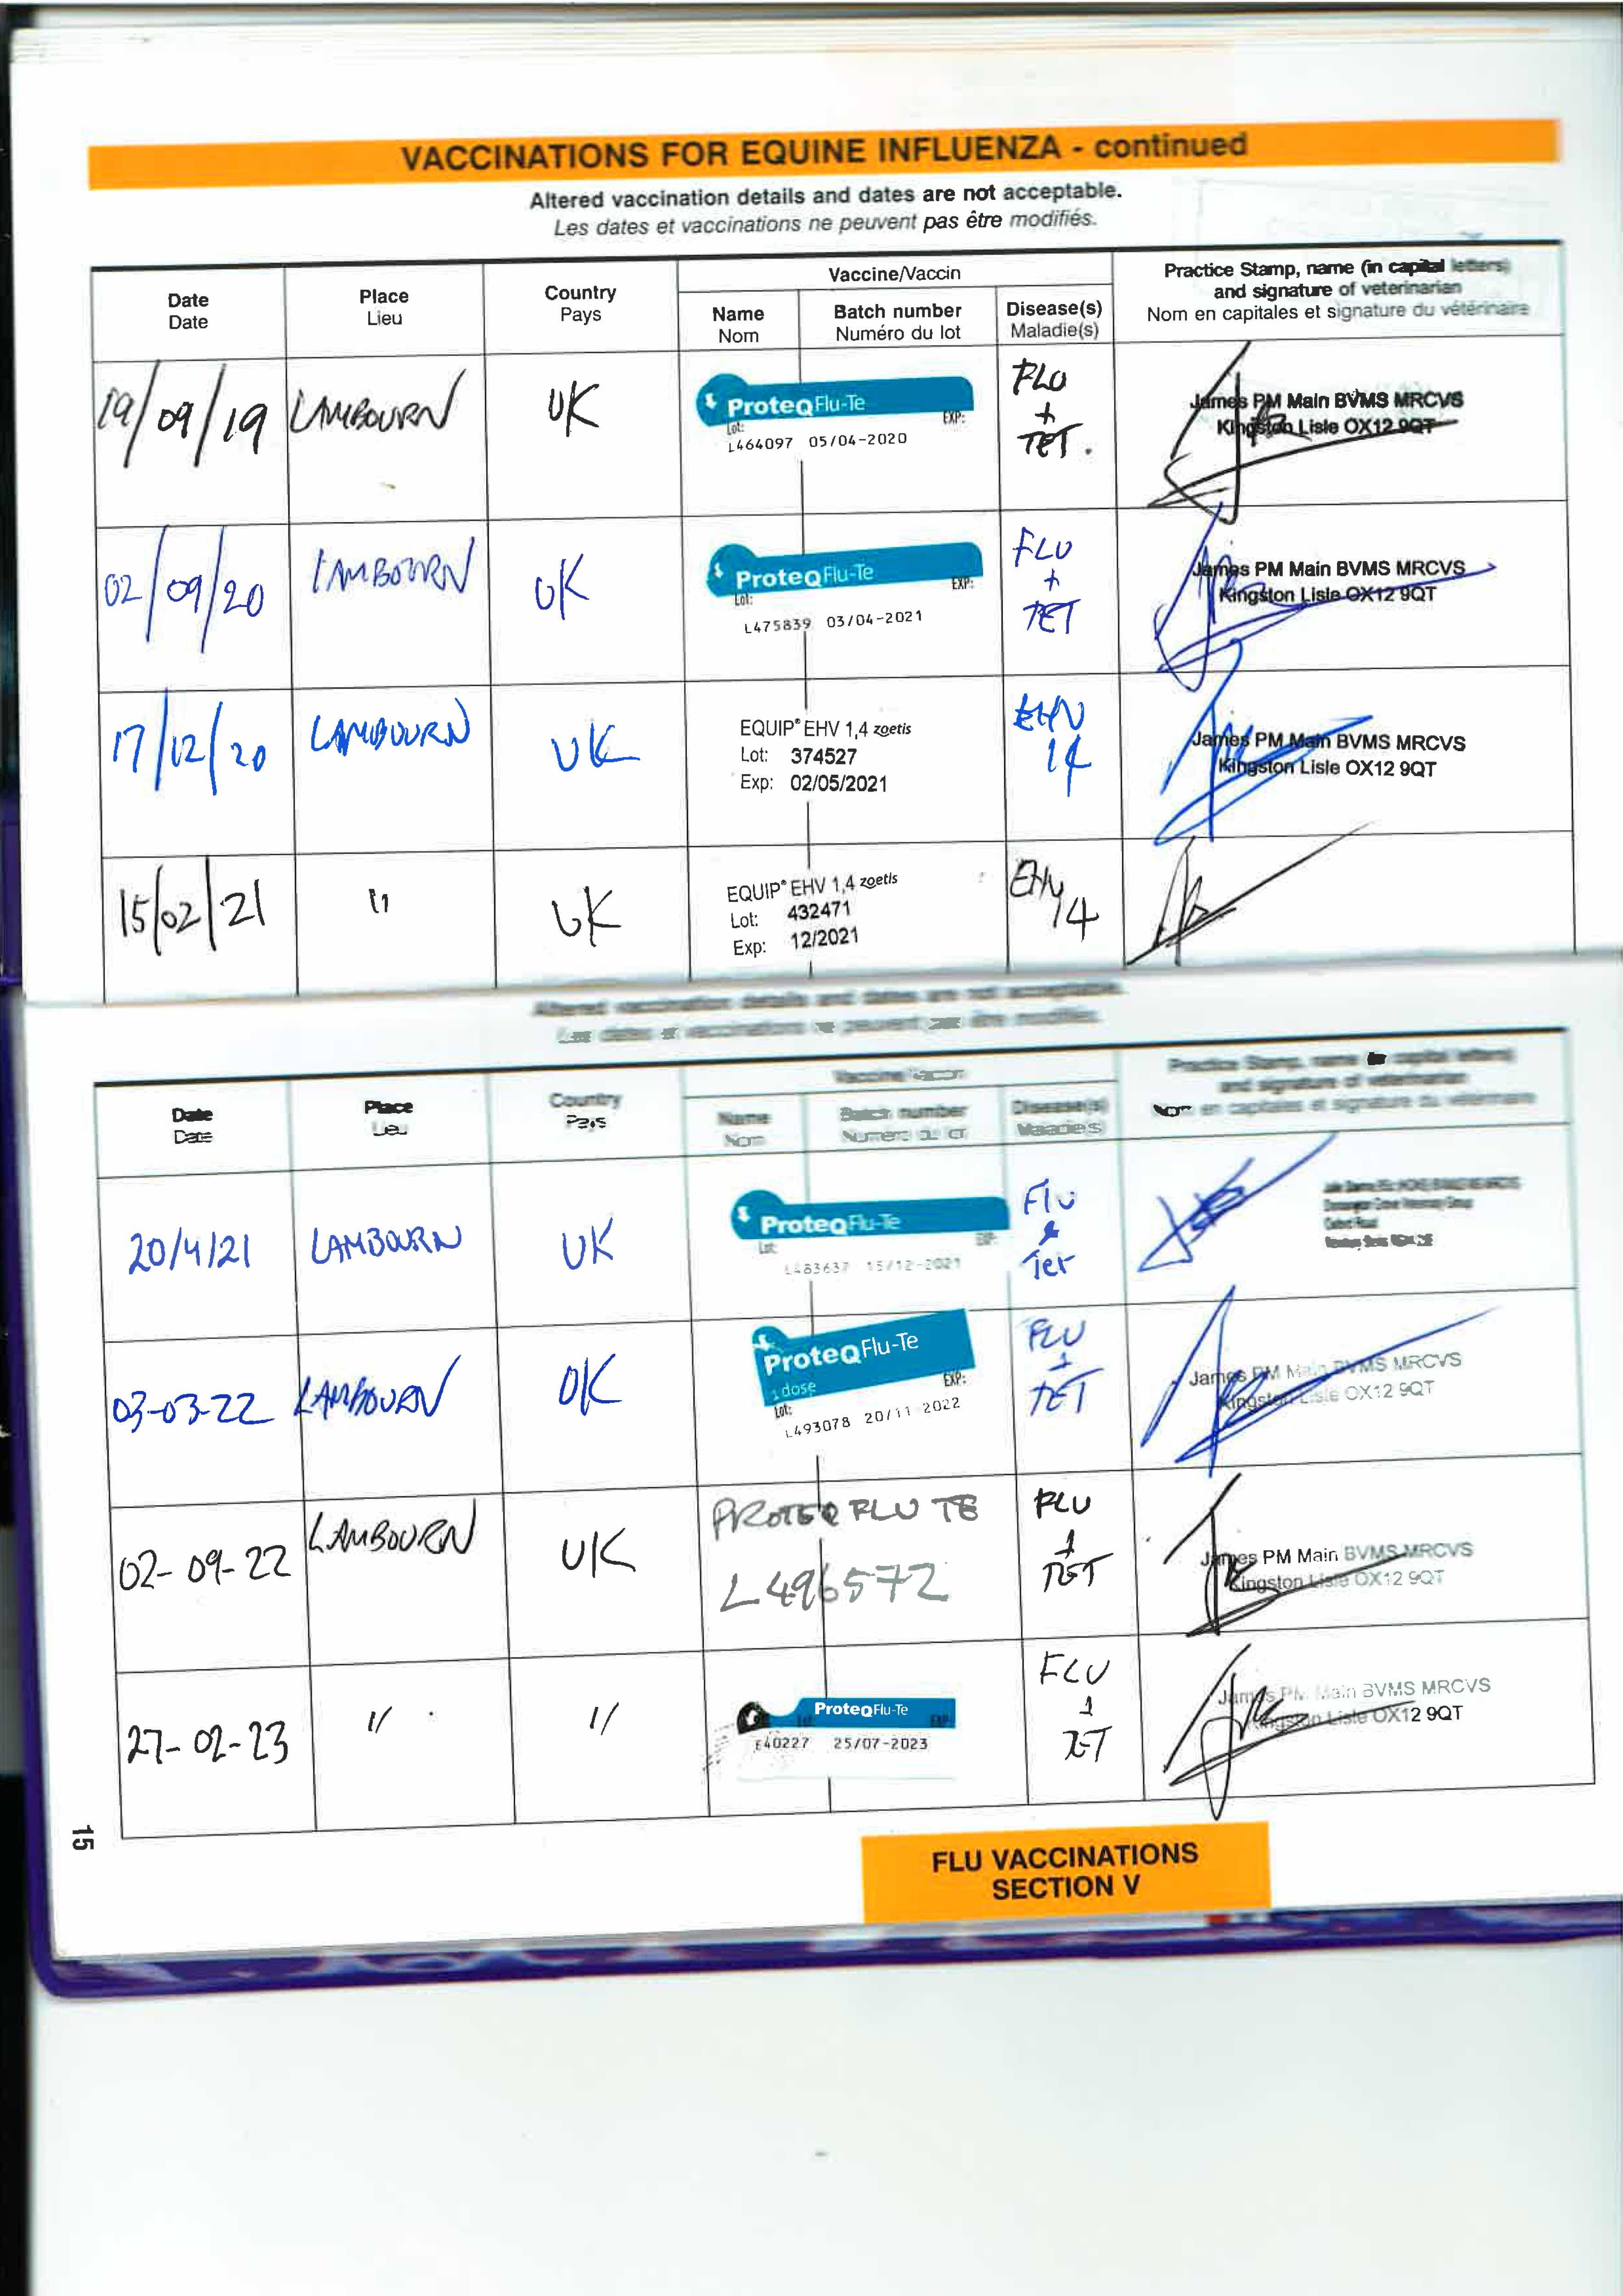 VACCINATIONS FOR EQUINE INFLUENZA - continued
Altered vaccination details and dates are not acceptable.
Les dates et vaccinations ne peuvent pas être modifiés.
Date
Date
Place
Lieu
Country
Pays
Vaccine/Vaccin
Name
Nom
Batch number
Numéro du lot
Disease(s)
Maladie(s)
Practice Stamp, name (in capital letters)
and signature of veterinarian
Nom en capitales et signature du vétérinaire
19/09/19 LAMBOURN UK
ProteqFlu-Te
Lot: EXP:
L464097 05/04-2020
FLU
+
TET.
James PM Main BVMS MRCVS
Kingston Lisle OX12 9QT
02/09/20 LAMBOURN UK
ProteqFlu-Te
Lot: EXP:
L475839 03/04-2021
FLU
+
TET
James PM Main BVMS MRCVS
Kingston Lisle OX12 9QT
17/12/20 LAMBOURN UK
EQUIP® EHV 1,4 zoetis
Lot: 374527
Exp: 02/05/2021
EHV
14
James PM Main BVMS MRCVS
Kingston Lisle OX12 9QT
15/02/21 " UK
EQUIP® EHV 1,4 zoetis
Lot: 432471
Exp: 12/2021
EHV
14
Altered vaccination details and dates are not acceptable.
Les dates et vaccinations ne peuvent pas être modifiés.
Date
Date
Place
Lieu
Country
Pays
Vaccine/Vaccin
Name
Nom
Batch number
Numéro du lot
Disease(s)
Maladie(s)
Practice Stamp, name (in capital letters)
and signature of veterinarian
Nom en capitales et signature du vétérinaire
20/4/21 LAMBOURN UK
ProteqFlu-Te
Lot: EXP:
L483637 15/12-2021
Flu
&
Tet
03-03-22 LAMBOURN UK
ProteqFlu-Te
1 dose EXP:
Lot:
L493078 20/11-2022
FLU
+
TET
James PM Main BVMS MRCVS
Kingston Lisle OX12 9QT
02-09-22 LAMBOURN UK
PROTEQ FLU TE
L496572
FLU
+
TET
James PM Main BVMS MRCVS
Kingston Lisle OX12 9QT
27-02-23 " "
ProteqFlu-Te
Lot: EXP
E40227 25/07-2023
FLU
+
TET
James PM Main BVMS MRCVS
Kingston Lisle OX12 9QT
15
FLU VACCINATIONS
SECTION V